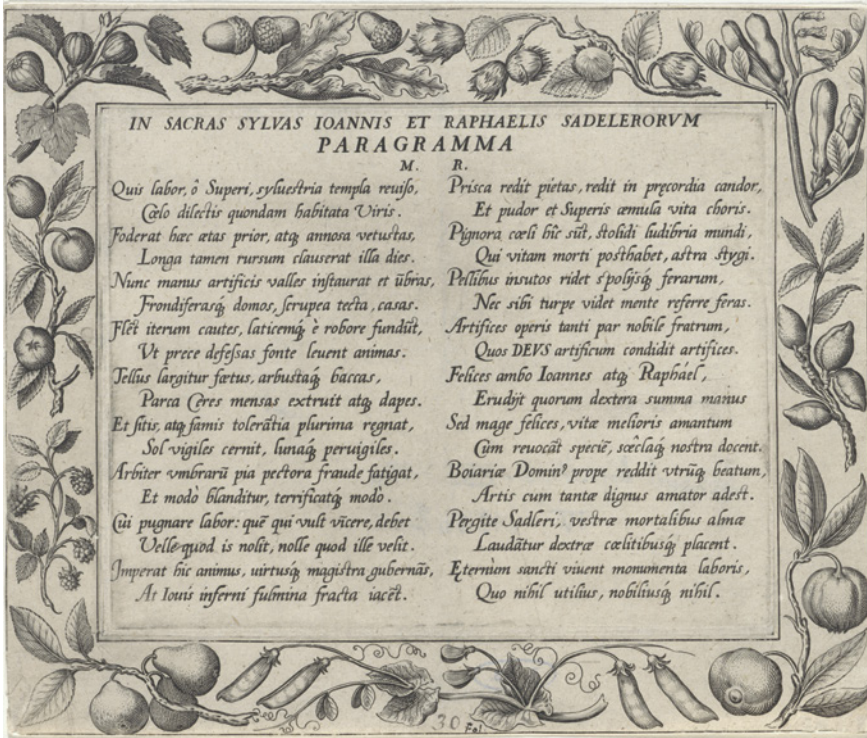 IN SACRAS SYLVAS IOANNIS ET RAPHAELIS SADELERORVM
PARAGRAMMA
M. R.
Quis labor, ô Superi, syluestria templa reuiso,
Cœlo dilectis quondam habitata Viris.
Foderat hæc ætas prior, atq; annosa vetustas,
Longa tamen rursum clauserat illa dies.
Nunc manus artificis valles instaurat et ūbras,
Frondiferasq; domos, scrupea tecta, casas.
Flēt iterum cautes, laticemq; è robore fundūt,
Vt prece defessas fonte leuent animas.
Tellus largitur fœtus, arbustaq; baccas,
Parca Ceres mensas extruit atq; dapes.
Et sitis, atq; famis tolerātia plurima regnat,
Sol vigiles cernit, lunaq; peruigiles.
Arbiter vmbrarū pia pectora fraude fatigat,
Et modò blanditur, terrificatq; modò.
Cui pugnare labor: quē qui vult vīcere, debet
Velle quod is nolit, nolle quod ille velit.
Imperat hic animus, uirtusq; magistra gubernās,
At Iouis inferni fulmina fracta iacēt.
Prisca redit pietas, redit in pręcordia candor,
Et pudor et Superis æmula vita choris.
Pignora cœli hîc sūt, stolidi ludibria mundi,
Qui vitam morti posthabet, astra stygi.
Pellibus insutos ridet spolijsq; ferarum,
Nec sibi turpe videt mente referre feras.
Artifices operis tanti par nobile fratrum,
Quos DEVS artificum condidit artifices.
Felices ambo Ioannes atq; Raphaël,
Erudijt quorum dextera summa manus
Sed mage felices, vitæ melioris amantum
Cùm reuocāt speciē, sœclaq; nostra docent.
Boiariæ Dominꝰ prope reddit vtrūq; beatum,
Artis cum tantæ dignus amator adest.
Pergite Sadleri, vestræ mortalibus almæ
Laudātur dextræ cœlitibusq; placent.
Ęternùm sancti viuent monumenta laboris,
Quo nihil utilius, nobiliusq; nihil.
30 Fol